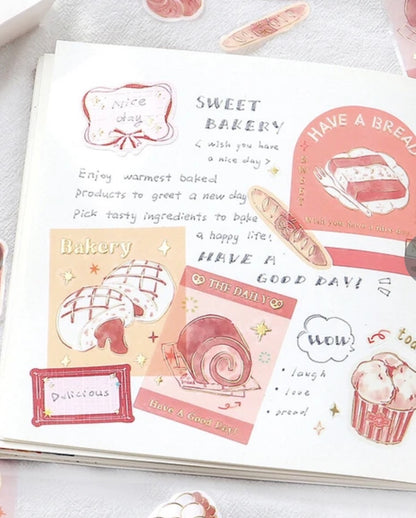 Nice
day
SWEET
BAKERY
< wish you have
a nice day >
HAVE A BREA
Enjoy warmest baked
products to greet a new day
Pick tasty ingredients to bake
a happy life!
HAVE A
GOOD DAY!
Bakery
THE DAILY
Have A Good Day!
Delicious
WOW
• laugh
• love
• bread